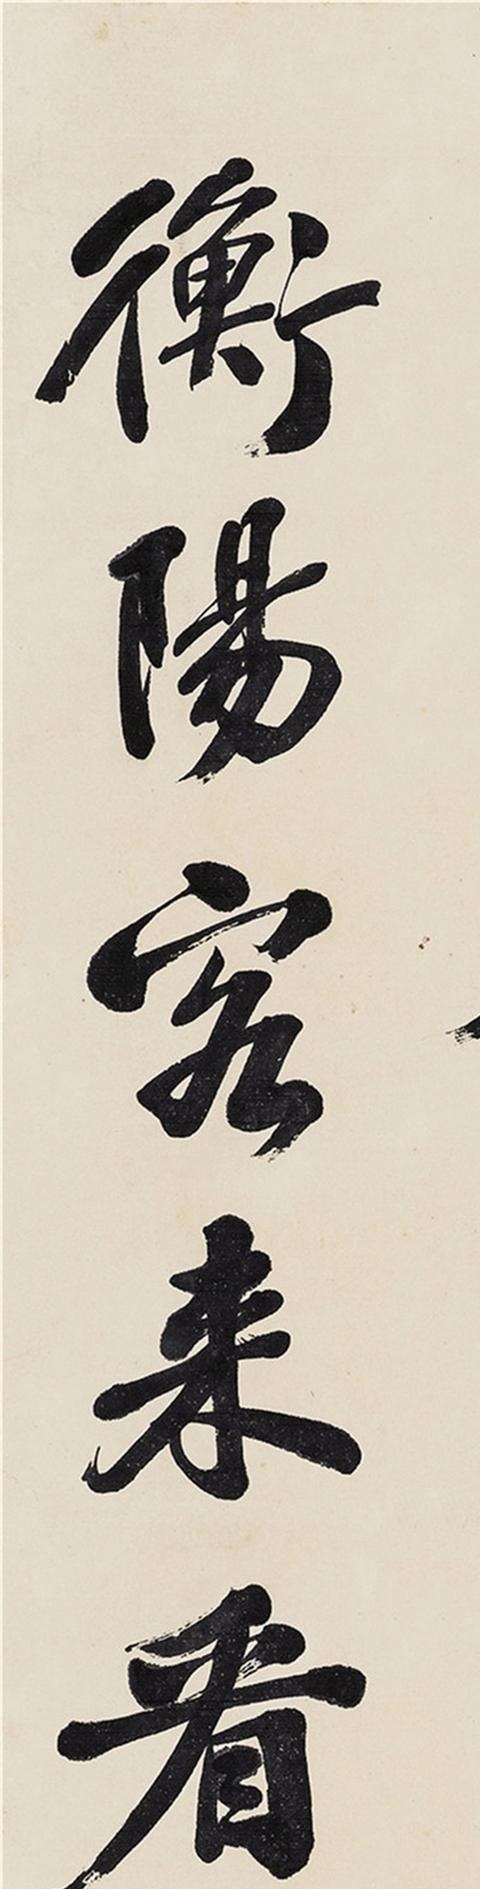 衡陽客来看